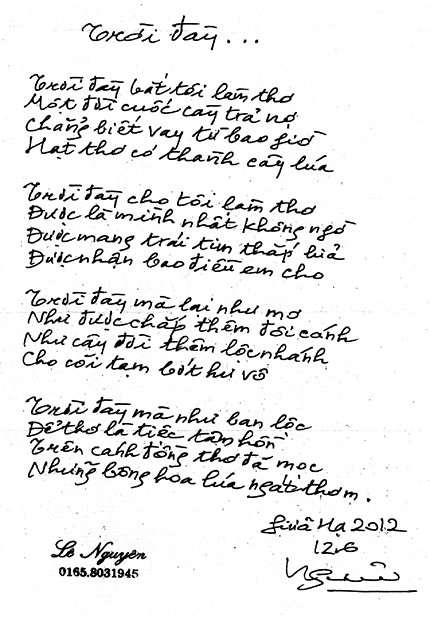 Trời đầy...
Trời đầy bắt tôi làm thơ
Một đời cuốc cày trả nợ
Chẳng biết vay từ bao giờ
Hạt thơ có thành cây lúa
Trời đầy cho tôi làm thơ
Được là mình nhất không ngờ
Được mang trái tim thắp lửa
Được nhận bao điều em cho
Trời đầy mà lại như mơ
Như được chắp thêm đôi cánh
Như cây đời thêm lộc nhánh
Cho cõi tạm bớt hư vô
Trời đầy mà như ban lộc
Để thơ là tiệc tâm hồn
Trên cánh đồng thơ đã mọc
Những bông hoa lúa ngát thơm.
Giữa Hạ 2012
12.6
Lê Nguyên
0165.8031945